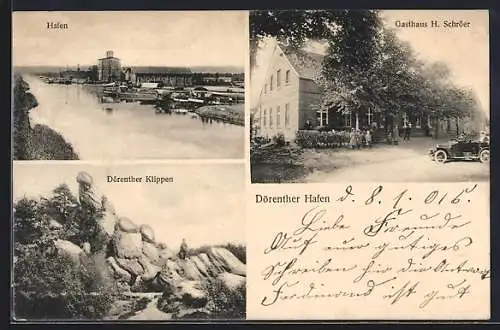 Hafen
Gasthaus H. Schröer
Dörenther Klippen
Dörenther Hafen d. 8. 1. 016.
Liebe Freunde
Auf euer gutiges
Schreiben hir die Antwort
Ferdinand ist gut